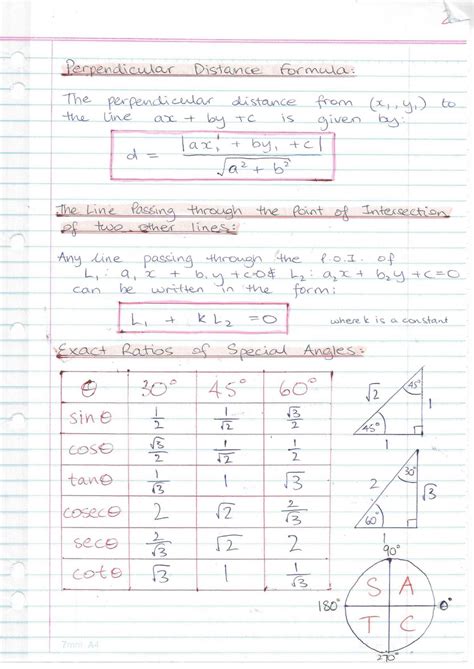 2
Perpendicular Distance Formula:
The perpendicular distance from (x₁, y₁) to
the line ax + by + c is given by:
d = |ax₁ + by₁ + c| / √(a² + b²)
The Line Passing through the Point of Intersection
of two other lines:
Any line passing through the P.O.I. of
L₁: a₁x + b₁y + c=0 & L₂: a₂x + b₂y + c=0
can be written in the form:
L₁ + kL₂ = 0 where k is a constant
Exact Ratios of Special Angles:
θ 30° 45° 60°
sinθ 1/2 1/√2 √3/2
cosθ √3/2 1/√2 1/2
tanθ 1/√3 1 √3
cosecθ 2 √2 2/√3
secθ 2/√3 √2 2
cotθ √3 1 1/√3
√2 45° 1
45°
1
30°
2 √3
60°
1
90°
S A
180° 0°
T C
270°
7mm A4